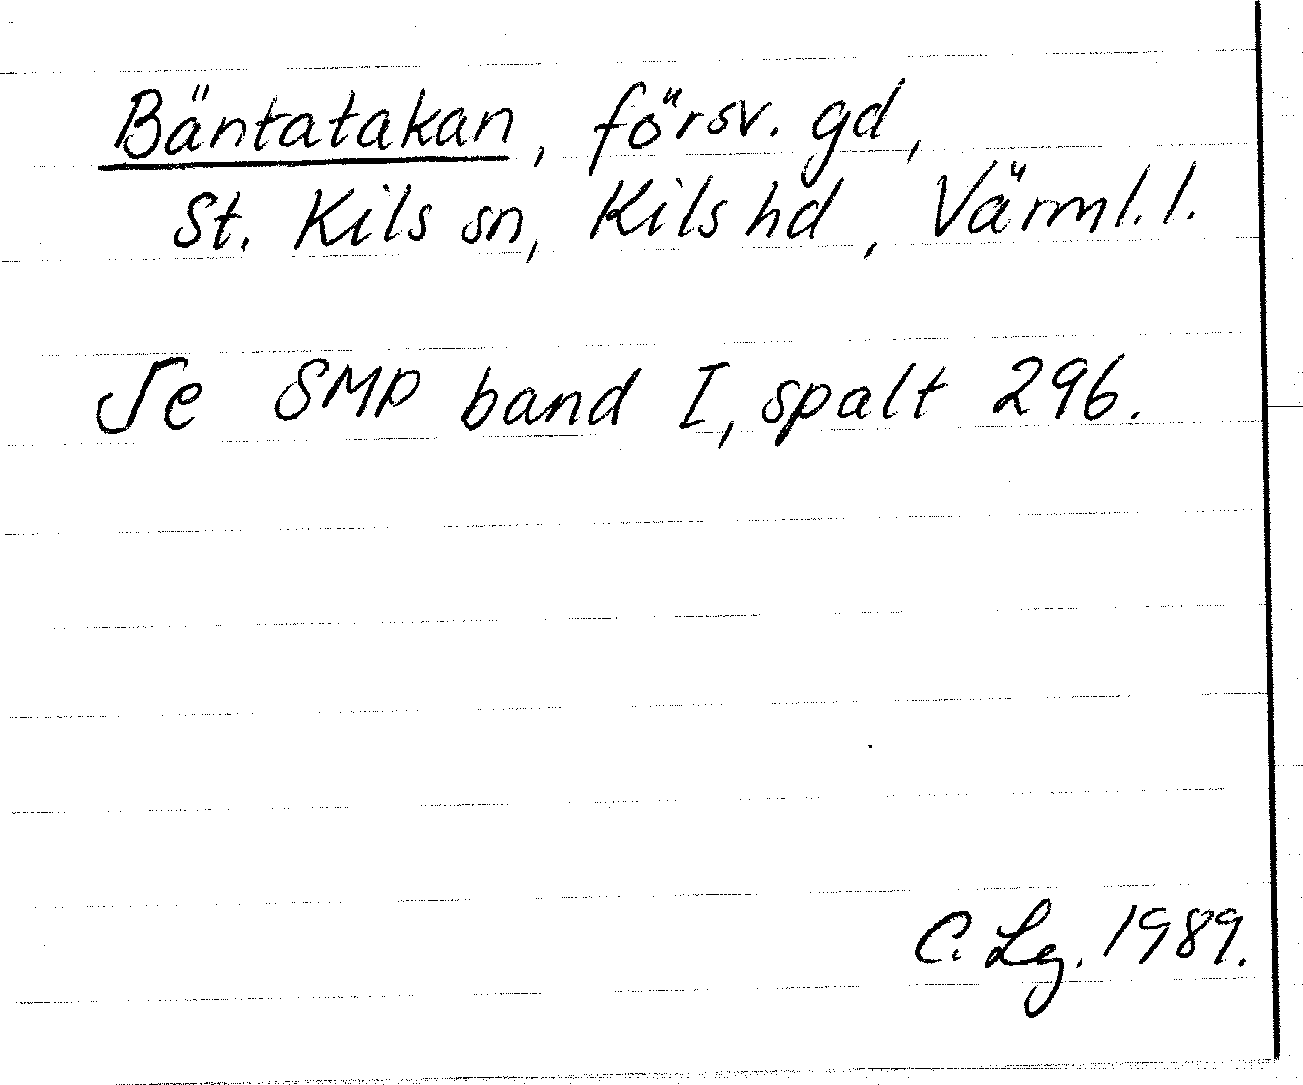 Bäntatakan, försv. gd,
St. Kils sn, Kils hd, Värml. l.
Se SMP band I, spalt 296.
C. Lg. 1989.